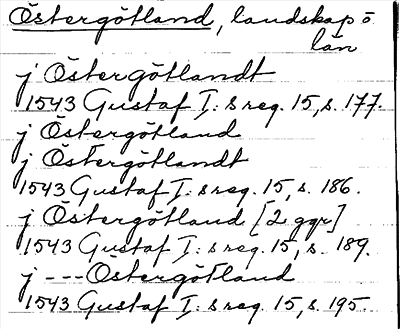 Östergötland, landskap o.
län
j Östergötlandt
1543 Gustaf I:s reg. 15, s. 177.
j Östergötland
j Östergötlandt
1543 Gustaf I:s reg. 15, s. 186.
j Östergötland [2 ggr]
1543 Gustaf I:s reg. 15, s. 189.
j --- Östergötland
1543 Gustaf I:s reg. 15, s. 195.